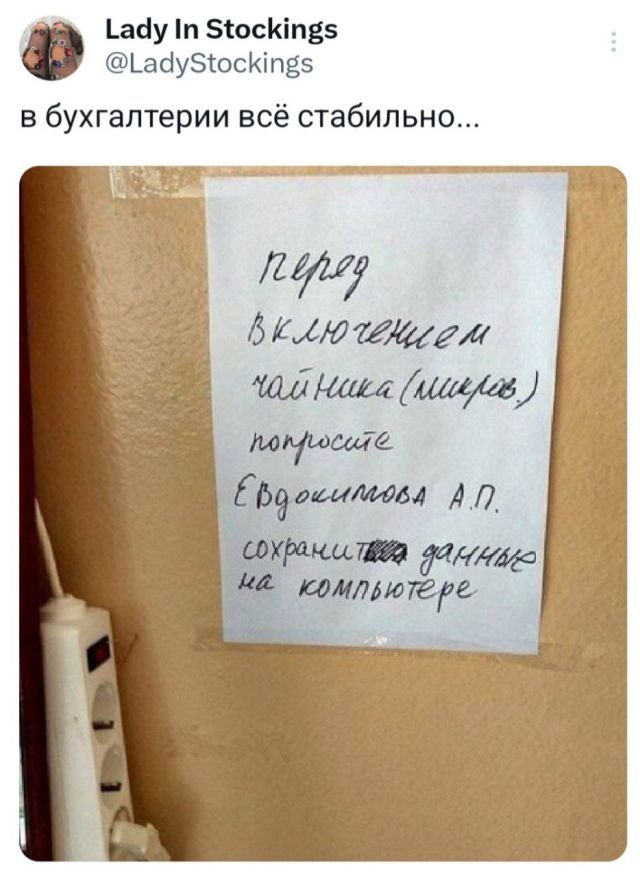 Lady In Stockings
@LadyStockings
в бухгалтерии всё стабильно...
перед
включением
чайника (микров.)
попросите
Евдокимова А.П.
сохранить данные
на компьютере